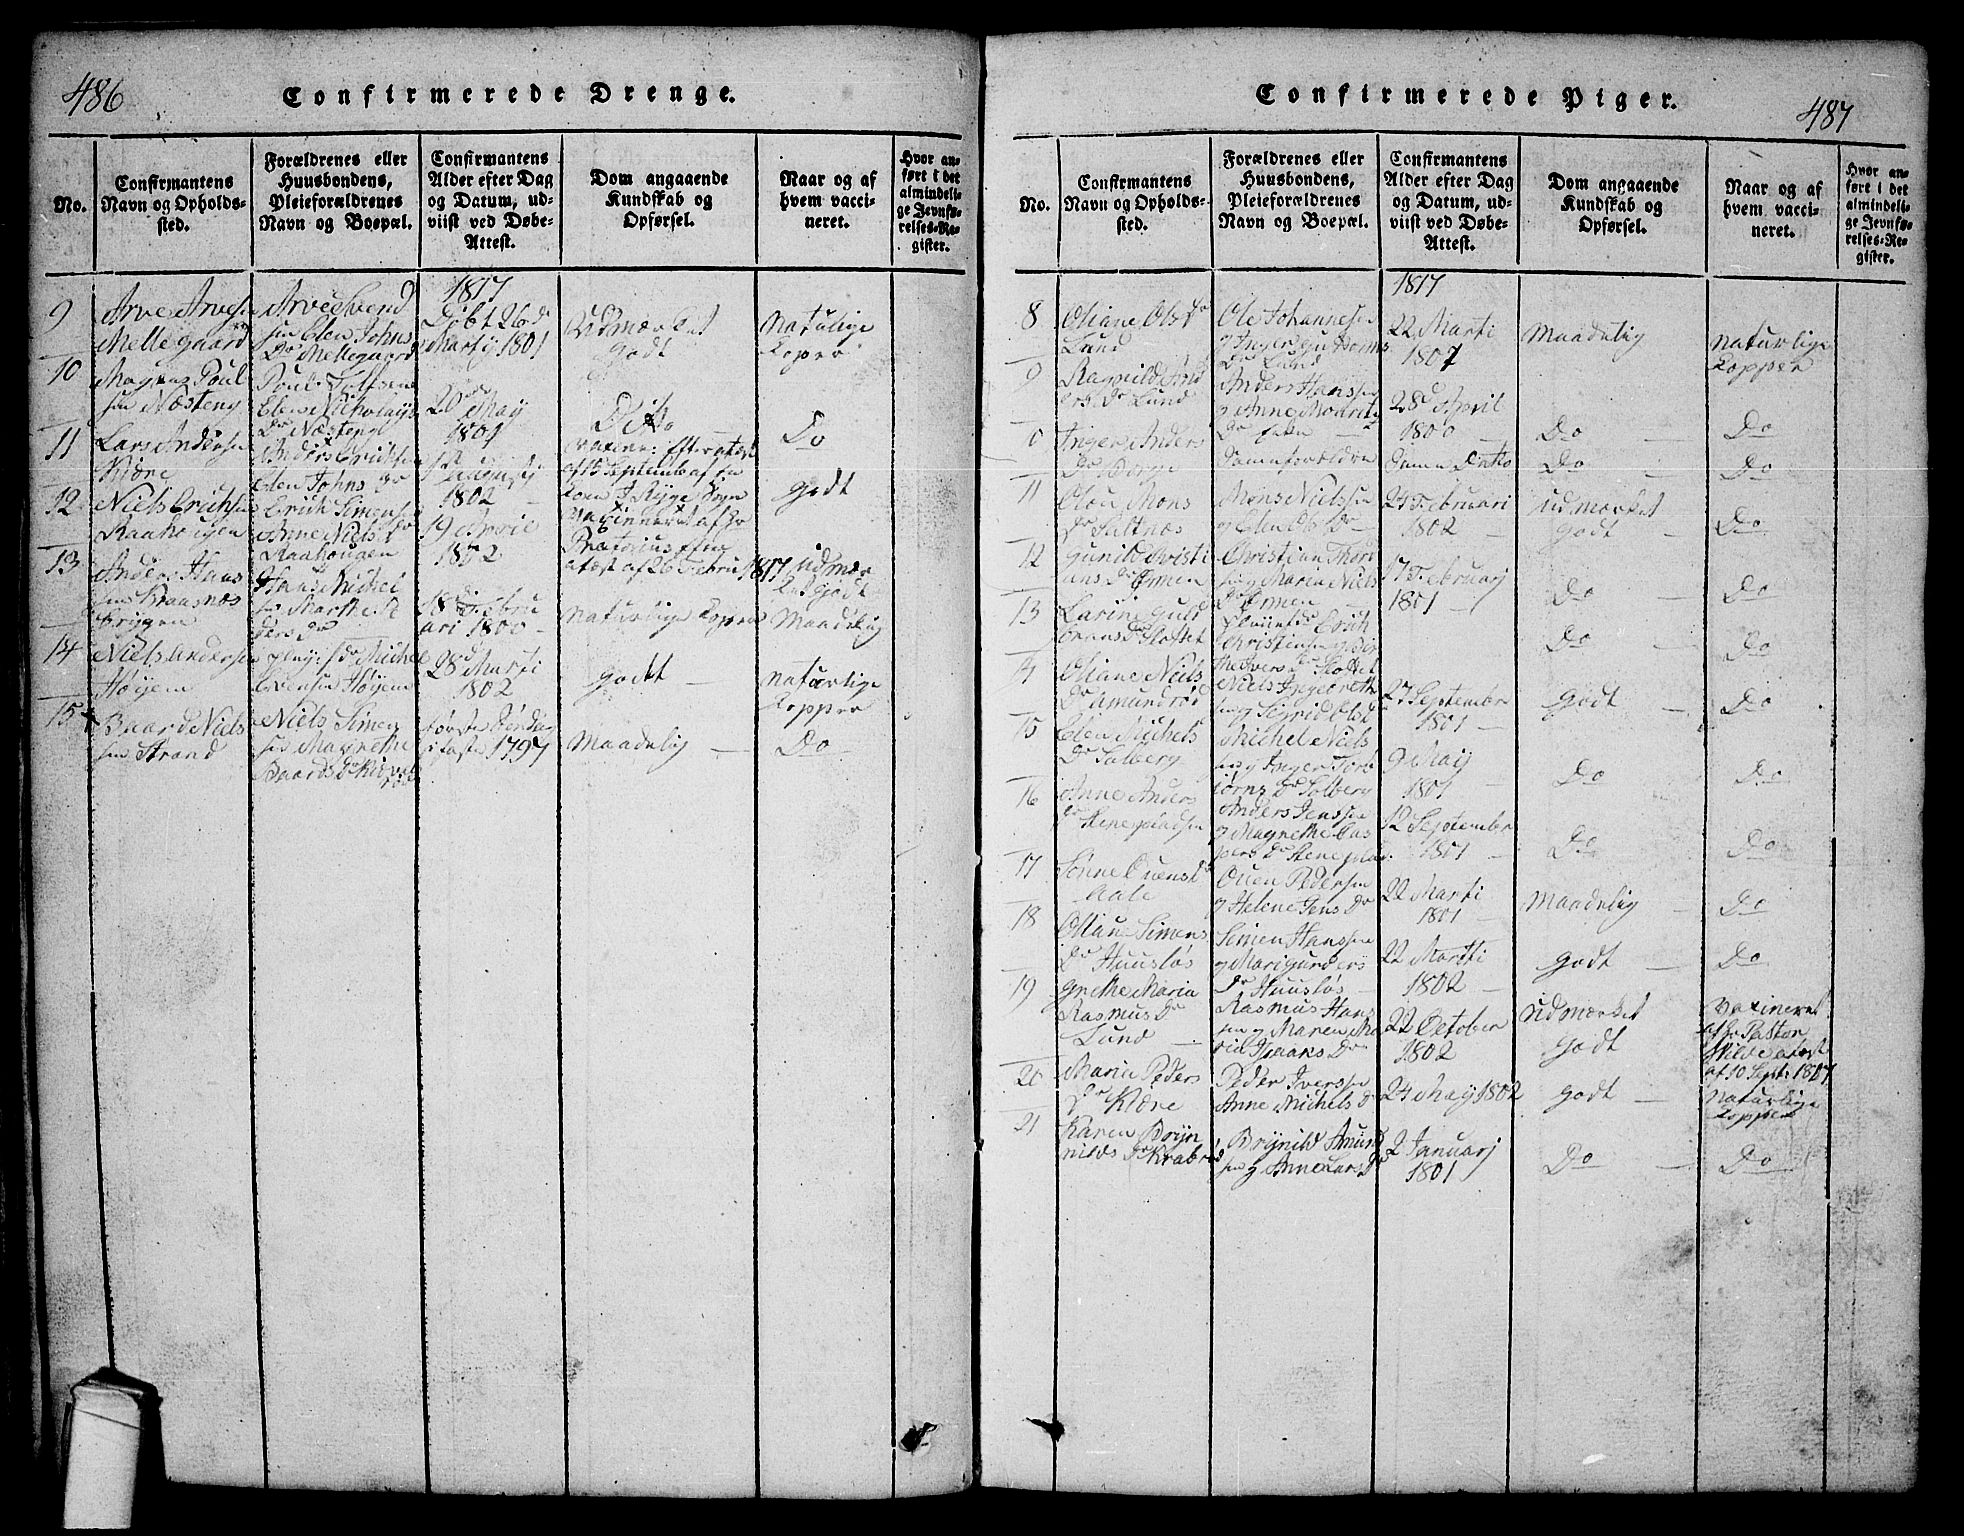 486
Confirmerede Drenge.
No.
Confirmantens
Navn og Opholds-
sted.
Forældrenes eller
Huusbondens,
Pleieforældrenes
Navn og Boepæl.
Confirmantens
Alder efter Dag
og Datum, ud-
viist ved Døbe-
Attest.
Dom angaaende
Kundskab og
Opførsel.
Naar og af
hvem vacci-
neret.
Hvor an-
ført i det
almindeli-
ge Jevnfø-
relses-Re-
gister.
1817
9
Arve Arves
Mellegaard
Arve Svend
sen Elen Johns
Dr Mellegaard
26de
Martij 1801
Udmærket
Godt
Natulige
Koper
10
Magnus Poul
sen Næsteng
Poul
Elen Nicholays
Dr Næsteng
20de May
1801
Dito
Do
11
Lars Andersen
Kiære
Anders Erichsen
Elen Johns Dr
Augustj
1802
af 15 Septemb af
Godt
12
Niels Erichsen
Raahougen
Erich Simens
Anne Niels Dr
Raahougen
19 April
1802
atest af 26 Februj 1817
udmær
ket Godt
13
Anders Hans
sen Kraasnæs
Bryggen
Hans Michel
sen Marthe
ders Dr
18de Febru
ari 1800
Naturlige Copper
Maadelig
14
Niels Andersen
Høyem
Michel
Evensen Høyem
28d Marti
1802
Godt
naturlige
Kopper
15
Baard Niels
sen Strand
Niels Simen
sen Magnethe
Baards Dr
første Søndag
i faste 1797
Maadelig
Do
Confirmerede Piger.
487
No.
Confirmantens
Navn og Opholds-
sted.
Forældrenes eller
Huusbondens,
Pleieforældrenes
Navn og Boepæl.
Confirmantens
Alder efter Dag
og Datum, ud-
viist ved Døbe-
Attest.
Dom angaaende
Kundskab og
Opførsel.
Naar og af
hvem vacci-
neret.
Hvor an-
ført i det
almindeli-
ge Jevnfø-
relses-Re-
gister.
1817
8
Oliane Ols Dr
Lund
Ole Johannesen
Dr Lund
22 Marti
1801
Maadelig
naturlige
Kopper
9
Ragnild And
ers Dr Lund
Anders Hanssen
g Anne
28d April
1800
Do
Do
0
Inger Anders
Dr Borge
Samme forældre
Samen Datto
Do
Do
11
Olea Mons
Dr Saltnæs
Mons Nielssen
g Elen Ols Dr
24 Februari
1802
udmærket
Godt
Do
12
Gunild Cristi
ans Dr Ørmen
Christian Thor
sen g Maren Niels
Dr Ørmen
17 Februarj
1801
Do
Do
13
Larine Guld
brans Dr Slottet
Erich
Christensen
Ivers Dr Slottet
Do
Do
14
Oliane Niels
Dr Amundrød
Niels Ingebreth
sen g Sigrid Olsd
27 September
1801
Godt
Do
15
Elen Michels
Dr Solberg
Michel Niels
sen g Inger Tor
iørns Dr Solberg
9 Maij
1801
Do
Do
16
Anne Anders
Dr Stenepladsen
Anders Jenssen
g Magnethe Cas
pers Dr Steneplad.
12 September
1801
Do
Do
17
Sønne Ouens Dr
Aale
Ouen Pedersen
g Helene Jens Dr
22 Marti
1801
Maadelig
Do
18
Olian Simens
Dr Huusløs
Simen Hanssen
g Mari Gunders
Dr Huusløs
22 Marti
1802
Godt
Do
19
Grethe Maria
Rasmus Dr
Lund
Rasmus Hans
sen g Maren Ma
ria Isaaks Dr
22 October
1802
Udmærket
Godt
Vaxineret
af Hr Pastor
Wilde atest
af 10 Sept: 1817
20
Maria Peders
Dr Kiære
Peder Iverssen
Anne Michels Dr
24 May 1802
Godt
Naturlige
Kopper
21
Karen Bryn
nilds Dr Krabrød
Brynild Amund
sen g Anne Lars Dr
2 Januarj
1801
Do
Do